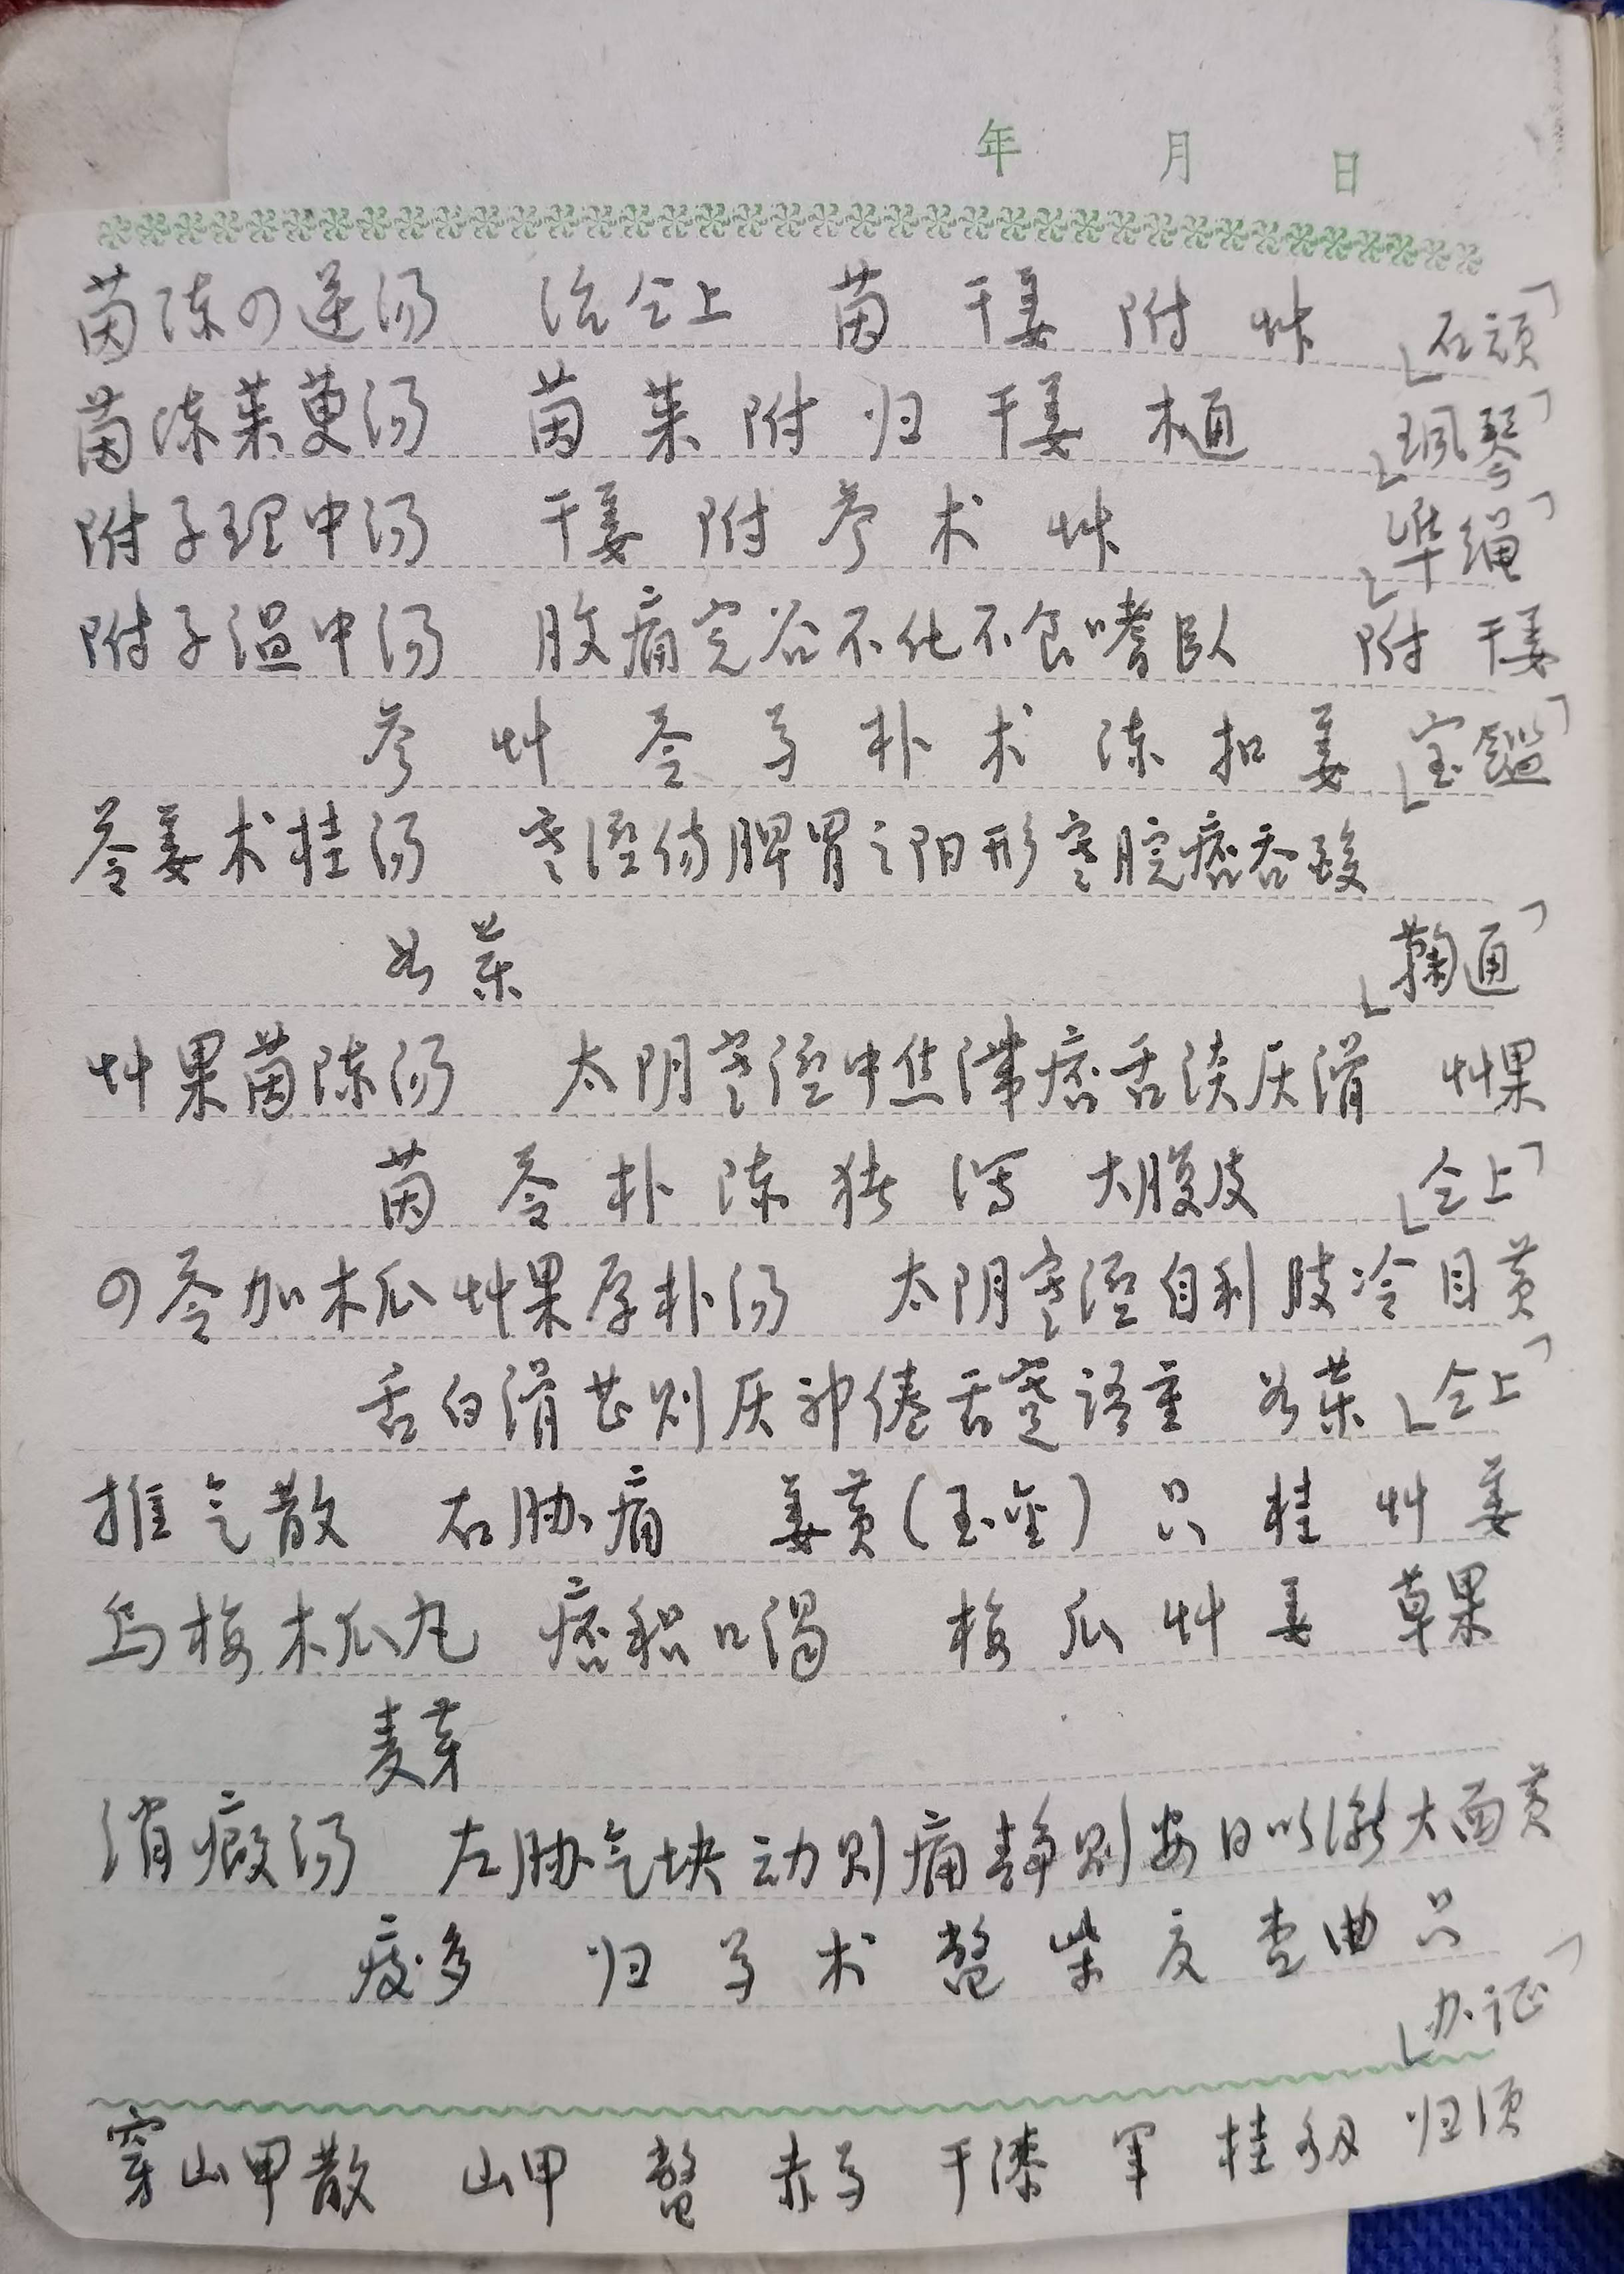 年 月 日
茵陈の逆汤 治仝上 茵 干姜 附 艸 「石顽」
茵陈茱萸汤 茵 茱 附 归 干姜 木通 「珮琴」
附子理中汤 干姜 附 参 术 艸 「准绳」
附子温中汤 腹痛完谷不化不食嗜卧 附 干姜
参 艸 苓 芍 朴 术 陈 扣 姜 「宝鑑」
苓姜术桂汤 寒湿伤脾胃之阳形寒脘痞吞酸
如药 「鞠通」
艸果茵陈汤 太阴寒湿中焦滞痞舌淡灰滑 艸果
茵 苓 朴 陈 猪 泻 大腹皮 「仝上」
の苓加木瓜艸果厚朴汤 太阴寒湿自利肢冷目黄
舌白滑甚则灰神倦舌蹇语重 如药 「仝上」
推气散 右胁痛 姜黄(玉金) 只 桂 艸 姜
乌梅木瓜丸 痞积口渴 梅 瓜 艸 姜 草果
麦芽
消癥汤 左胁气块动则痛静则安日以渐大面黄
痰多 归 芍 术 鳖 柴 夏 查 曲 只
「办证」
穿山甲散 山甲 鳖 赤芍 干漆 军 桂 归须